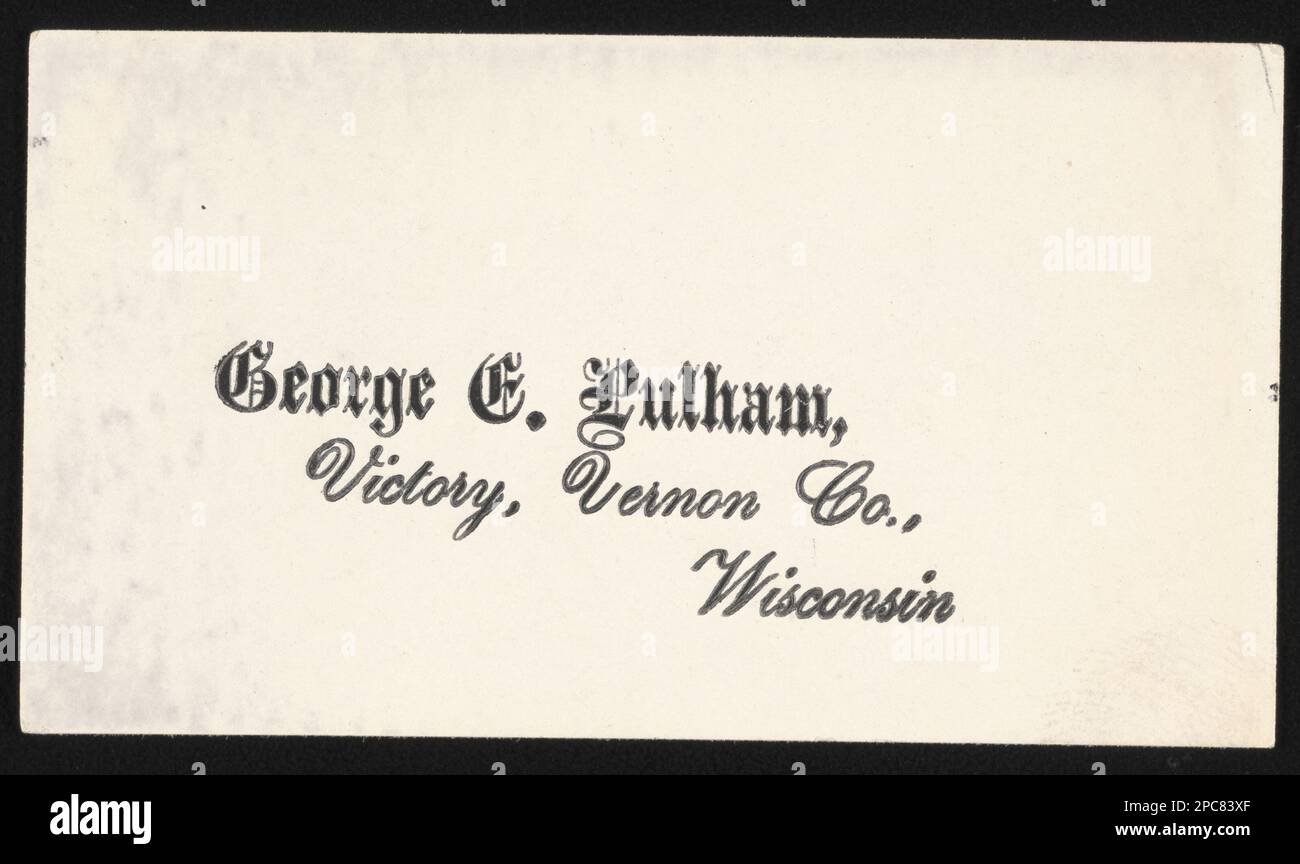 George E. Pulham,
Victory, Vernon Co.,
Wisconsin
alamy
alamy
alamy
alamy
alamy
Image ID: 2PC83XF
www.alamy.com